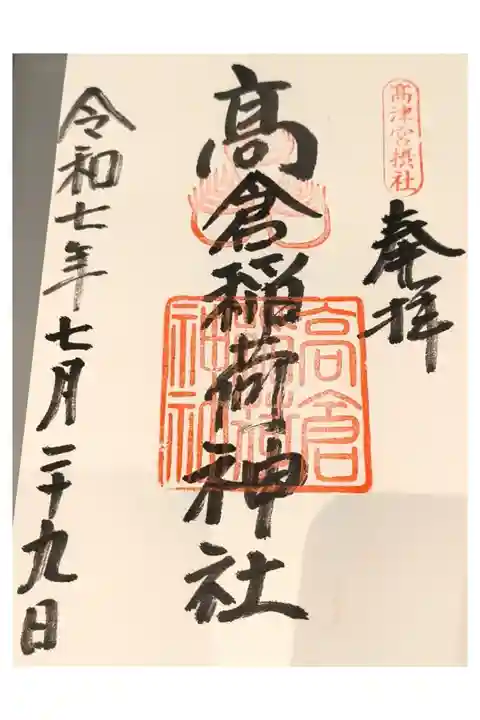 高津宮摂社
奉拝
髙倉稲荷神社
高倉
稲荷
神社
令和七年七月二十九日